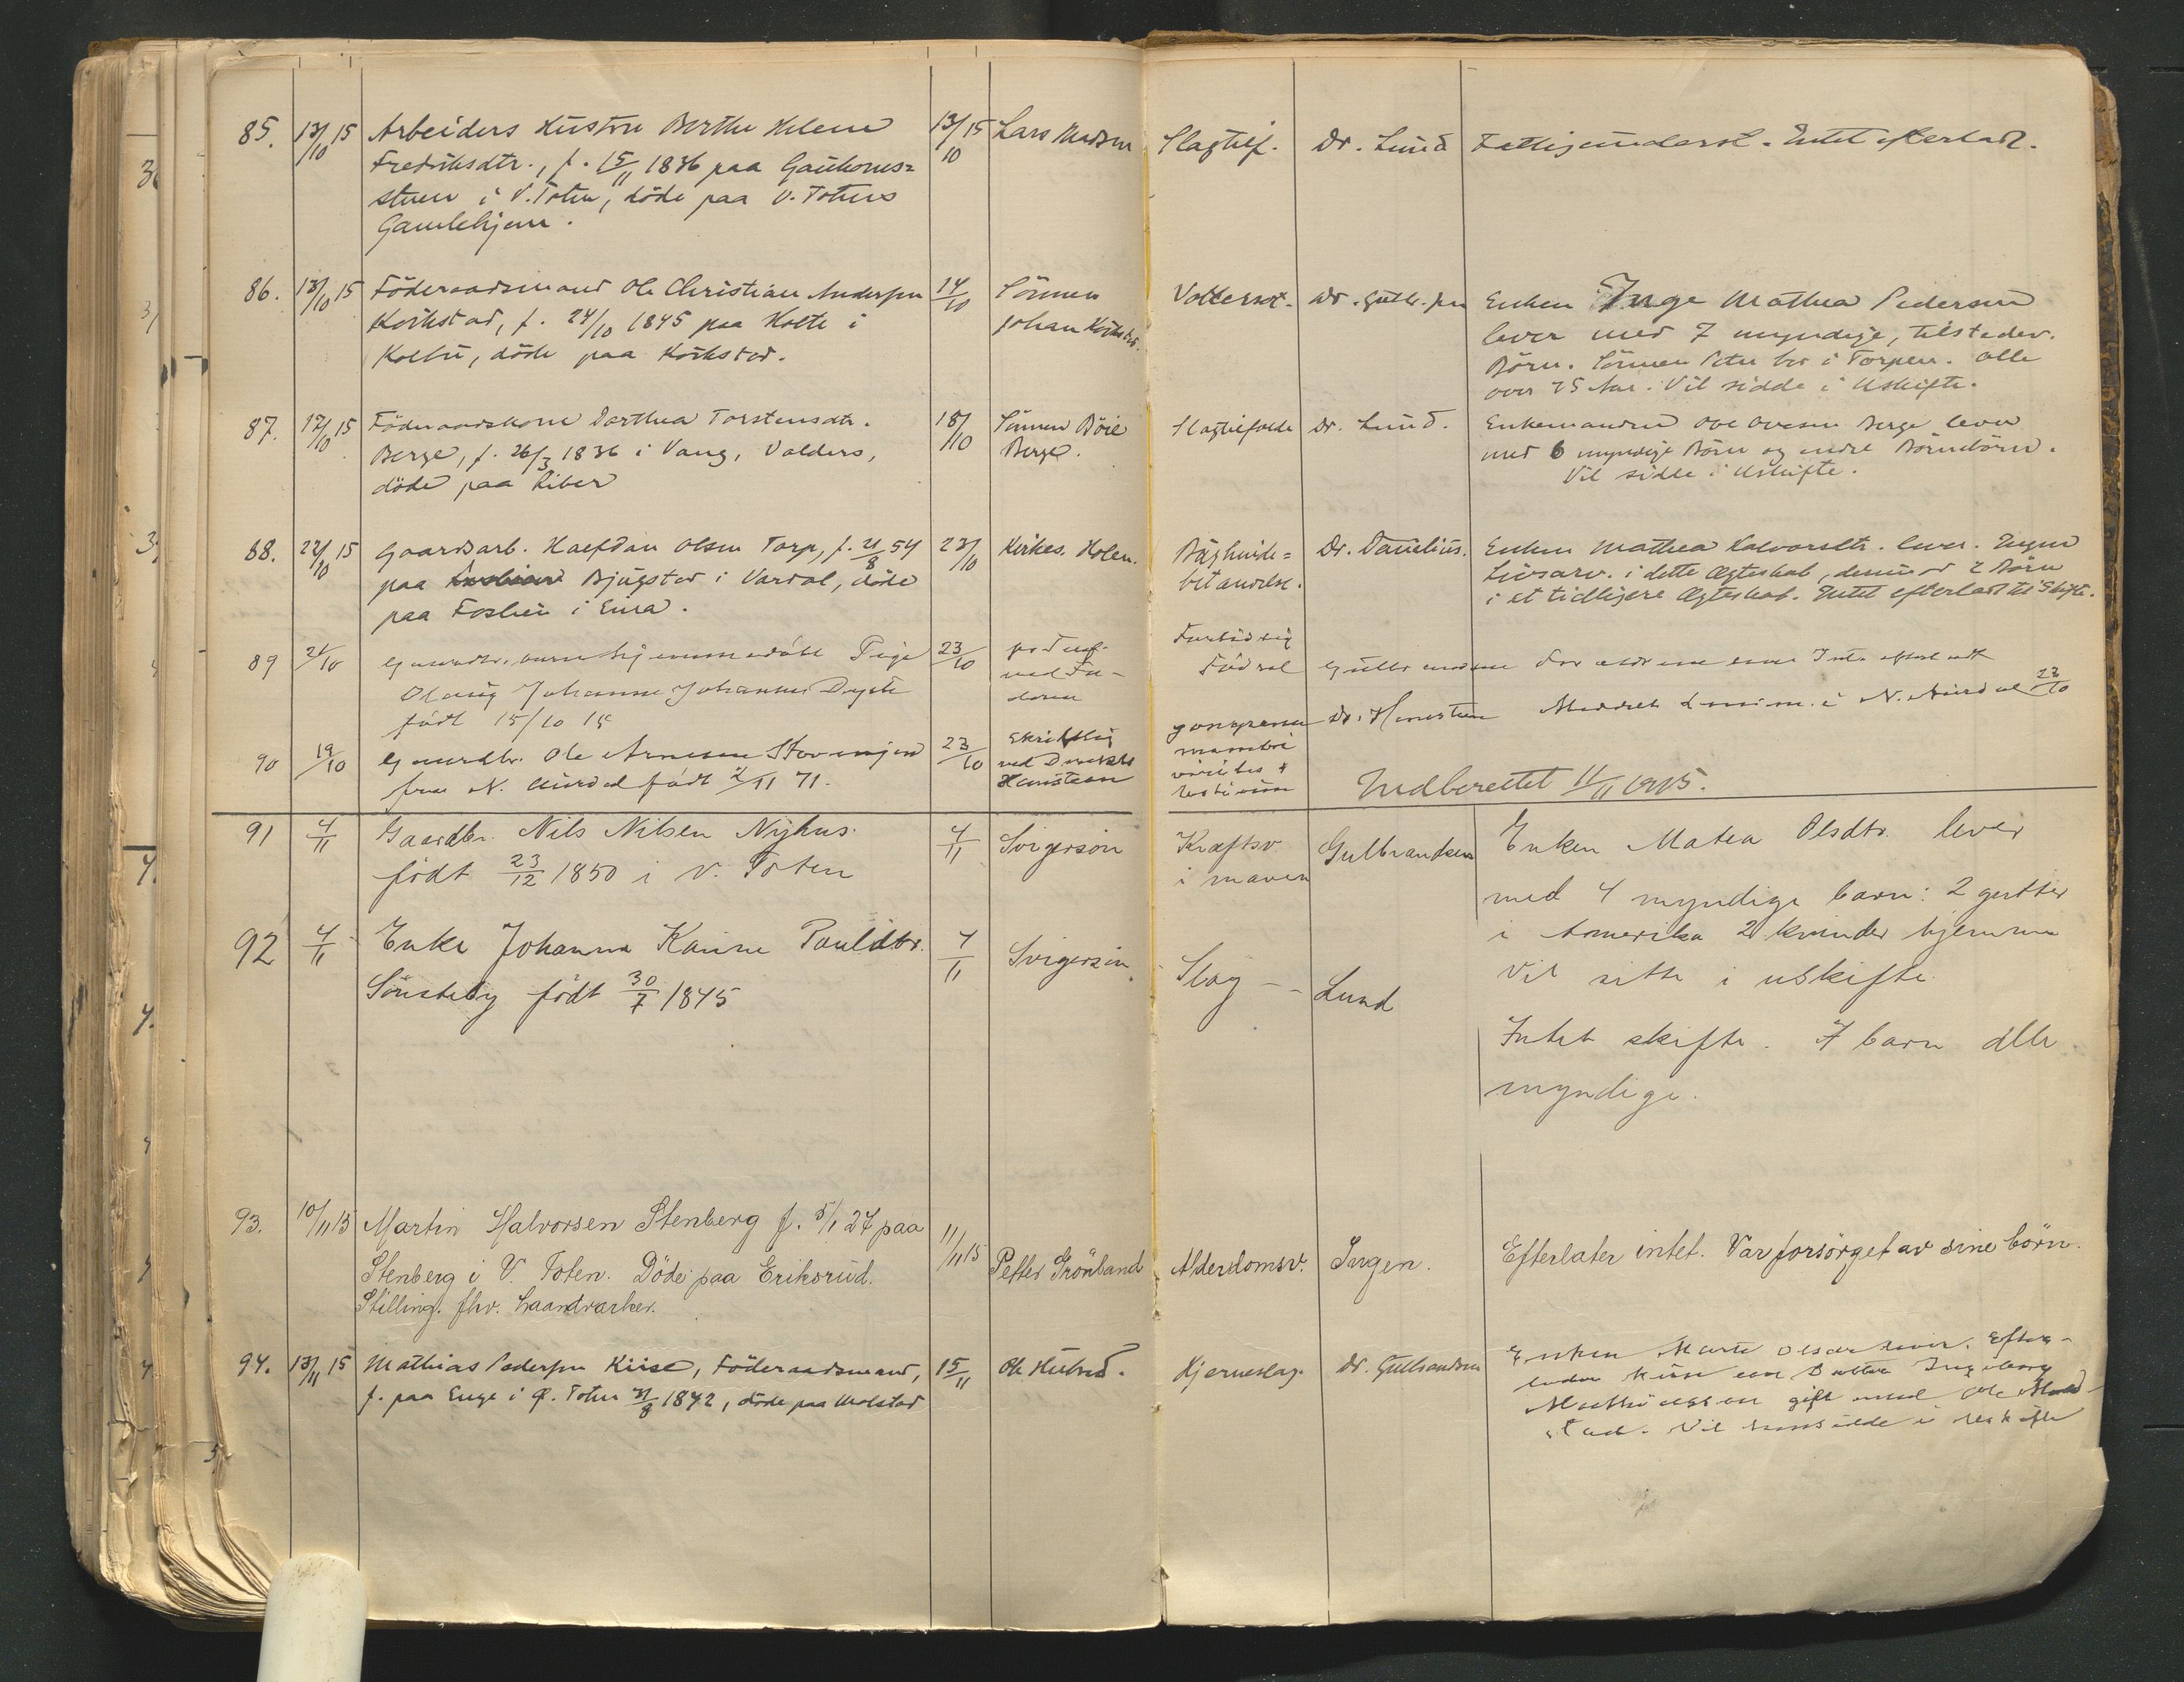 85. 13/10 15 Arbeiders Hustru Berthe Helene 13/10 15 Lars Madsen Slagtilf. Dr. Lund Fattigunderst. Intet efterladt.
Fredriksdtr., f. 15/11 1836 paa Gaukoms=
stuen i V. Toten, döde paa V. Totens
Gamlehjem.
86. 13/10 15 Föderaadsmand Ole Christian Andersen 14/10 Sönnen Vattersot. Dr. Gulbr.sen Enken Inge Mathea Pedersen
Kvikstad, f. 24/10 1845 paa Holte i Johan Kvikstad. lever med 7 myndige, tilstedev.
Kolbu, döde paa Kvikstad. Börn. Sönnen Peter bor i Torpen. Alle
over 25 Aar. Vil sidde i Uskifte.
87. 17/10 15 Föderaadskone Dorthea Torstensdtr. 18/10 Sönnen Böie Slagtilfælde Dr. Lund. Enkemanden Ove Ovesen Berge lever
Berge, f. 26/3 1836 i Vang, Valders, Berge. med 6 myndige Börn og endel Börnebörn.
döde paa Liber Vil sidde i Uskifte.
88. 22/10 15 Gaardsarb. Halfdan Olsen Torp, f. 21/8 54 23/10 Kirkes. Holen. Bughinde= Dr. Danelius. Enken Mathea Halvorsdtr. lever. Ingen
paa Bjugstad i Vardal, döde betændelse. Livsarv. i dette Ægteskab, derimod 2 Börn
paa Foslien i Eina. i et tidligere Ægteskab. Intet efterladt til Skifte.
89 21/10 Gaardbr. hjemmedöbt Pige 23/10 pr Telef. Fortidlig
Johanne Johannes Dyste ved Fa- Födsel Forældrene
födt 15/10 15 deren
Dr. Hansteen Meddelt i N. Aurdal 23/10
90 19/10 Gaardbr. Ole Arnesen 23/10 Skriftlig gangræna
fra N. Aurdal födt 2/11 71. ved Hanstean
Indberettet 11/11 1915.
91 4/11 Gaardbr. Nils Nilsen Nyhus. 4/11 Svigersön Kræftsv. Gulbrandsen Enken Matea Olsdtr. lever
födt 23/12 1850 i V. Toten i maven med 4 myndige barn: 2 gutter
i Amerika 2 kvinder hjemme
Vil sitte i uskifte.
92 4/11 Enke Johanna Karine Pouldtr. 4/11 Svigersön Slag Lund
Sönsteby födt 30/7 1845
Intet skifte. 7 barn alle
myndige.
93. 10/11 15 Martin Halvorsen Stenberg f. 5/1 27 paa 11/11 15 Petter Grönland Alderdomsv. Ingen. Efterlater intet. Var forsörget av sine börn.
Stenberg i V. Toten. Döde paa Eriksrud.
Stilling. fhv. haandverker.
94. 13/11 15 Mathias Pedersen Kiise, Föderaadsmand, 15/11 Ole Hjerneslag. Dr. Gulbrandsen Enken Marte Olsdtr lever. Efter-
f. paa Enge i Ø. Toten 31/8 1842, döde paa Molstad lader kun een Datter Ingeborg
Mathiassen gift med Ole Mol-
stad. Vil hensidde i uskifte